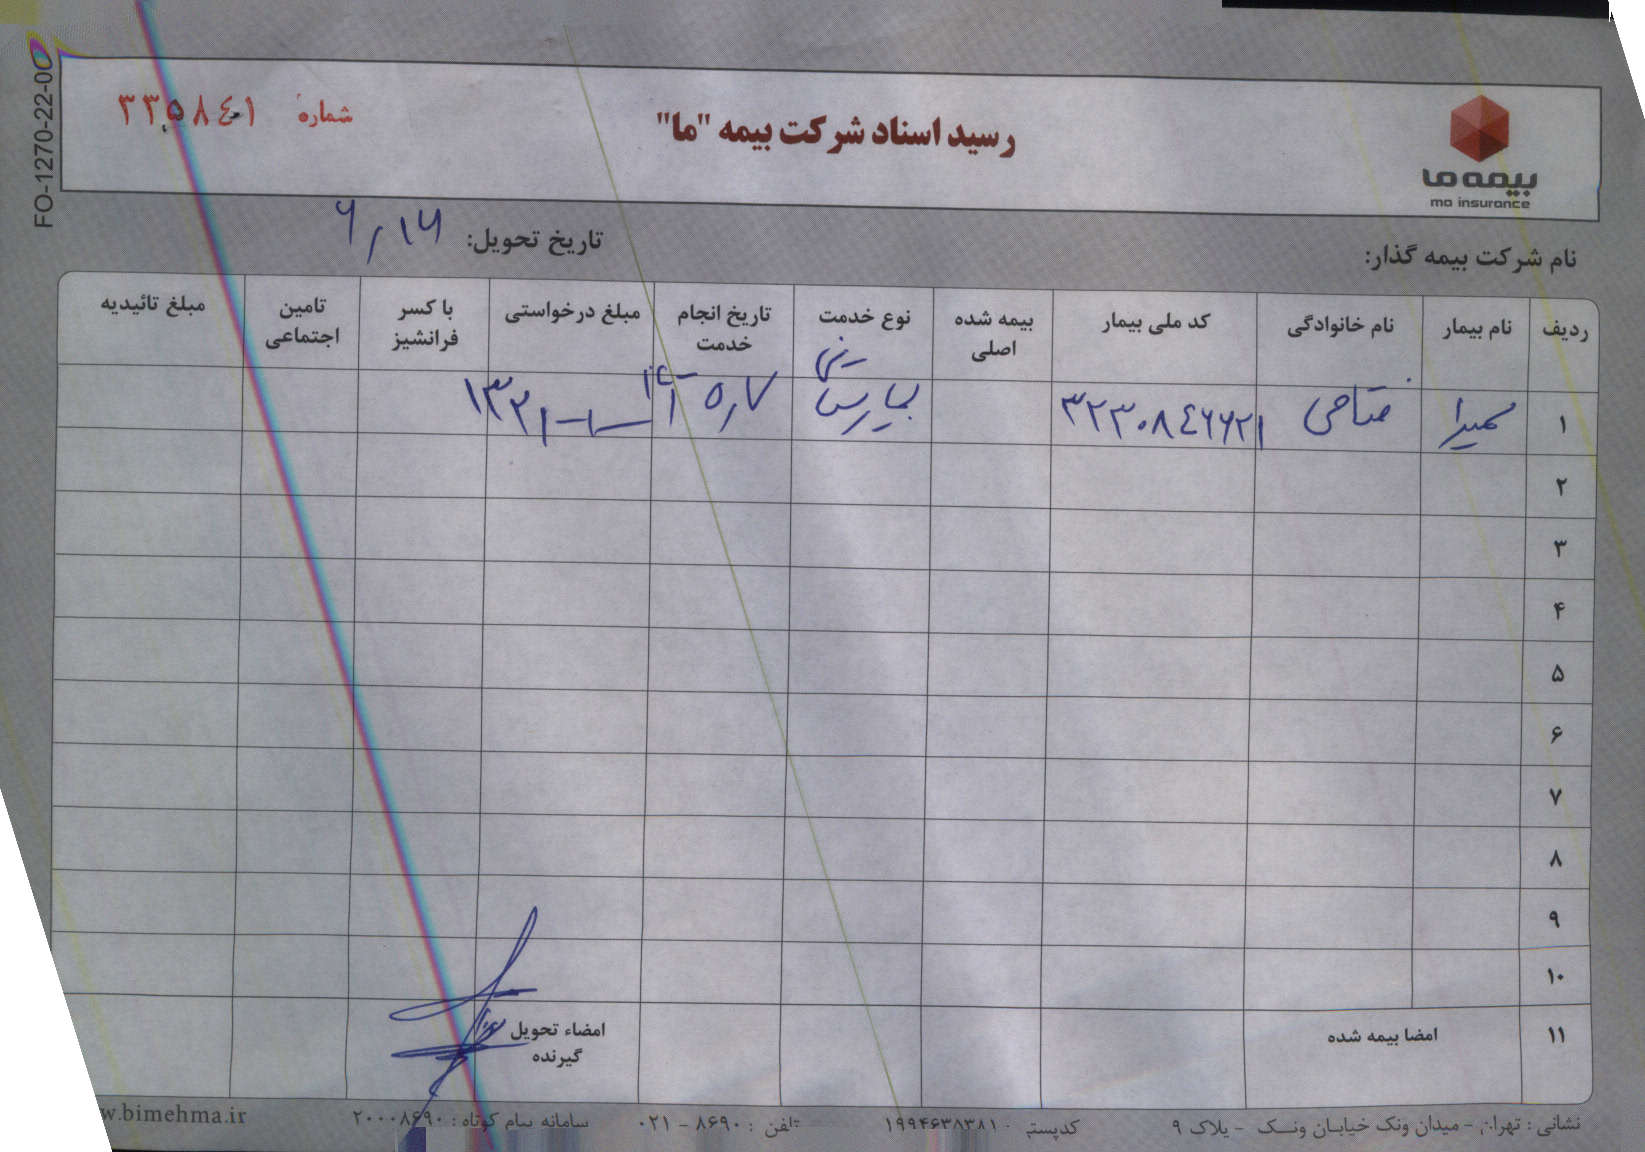 FO-1270-22-00
بیمه ما
ma insurance
رسید اسناد شرکت بیمه "ما"
شماره ۳۳۵۸۴۰۱
نام شرکت بیمه گذار:
تاریخ تحویل: ۶٫۱۶
ردیف نام بیمار نام خانوادگی کد ملی بیمار بیمه شده اصلی نوع خدمت تاریخ انجام خدمت مبلغ درخواستی با کسر فرانشیز تامین اجتماعی مبلغ تائیدیه
۱ سمیرا فتاحی ۳۲۳۰۸۴۶۶۲۱
۲
۳
۴
۵
۶
۷
۸
۹
۱۰
۱۱ امضا بیمه شده امضاء تحویل گیرنده
نشانی : تهران - میدان ونک خیابان ونک - پلاک ۹ کدپستی : ۱۹۹۴۶۳۸۳۸۱ تلفن : ۸۶۹۰ - ۰۲۱ سامانه پیام کوتاه : ۲۰۰۰۸۶۹۰ w.bimehma.ir